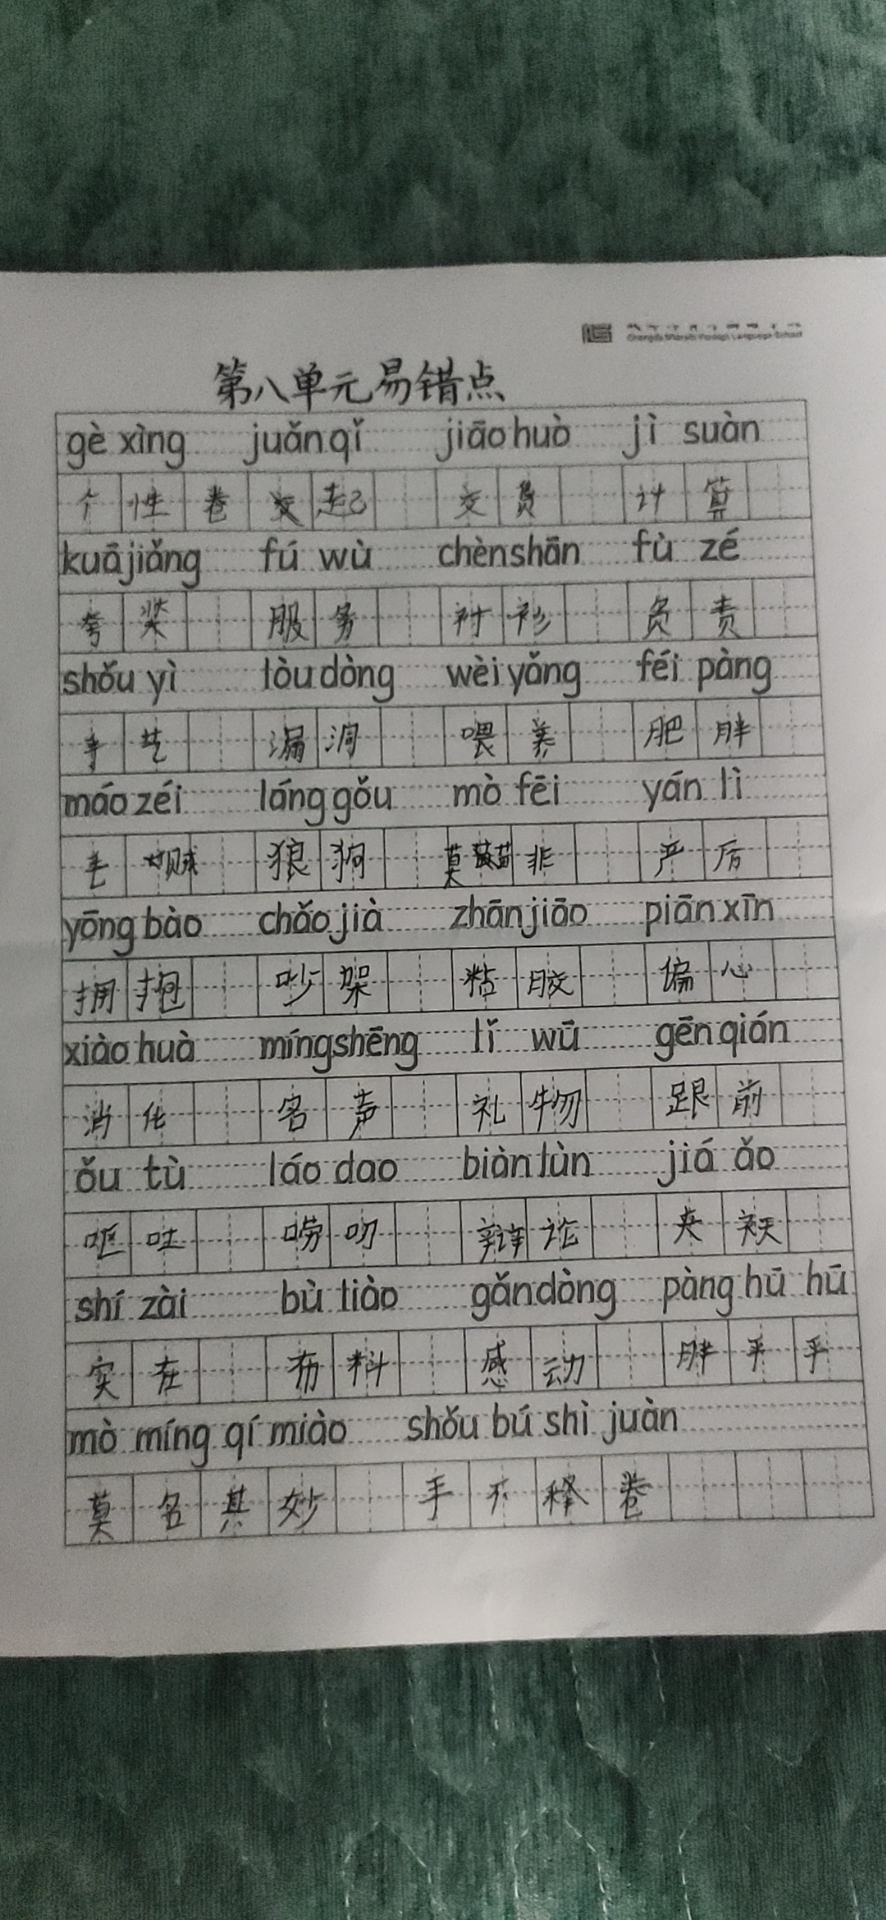 第八单元易错点
gè xìng juǎn qǐ jiāo huò jì suàn
个性卷起交货计算
kuā jiǎng fú wù chèn shān fù zé
夸奖服务衬衫负责
shǒu yì lòu dòng wèi yǎng féi pàng
手艺漏洞喂养肥胖
máo zéi láng gǒu mò fēi yán lì
毛贼狼狗莫非严厉
yōng bào chǎo jià zhān jiāo piān xīn
拥抱吵架粘胶偏心
xiào huà míng shēng lǐ wū gēn qián
消化名声礼物跟前
ǒu tù láo dao biàn lùn jiá ǎo
呕吐唠叨辩论夹袄
shí zài bù liào gǎn dòng pàng hū hū
实在布料感动胖乎乎
mò míng qí miào shǒu bú shì juàn
莫名其妙手不释卷